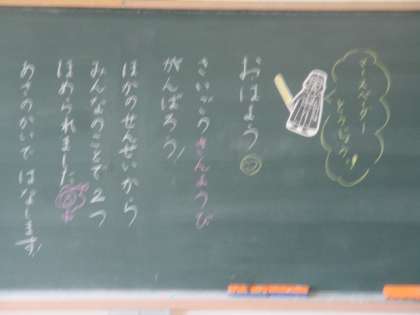 おはよう
さいごの きんようび
がんばろう!
ほかのせんせいから
みんなのことで2つ
ほめられました
あさのかいで はなします